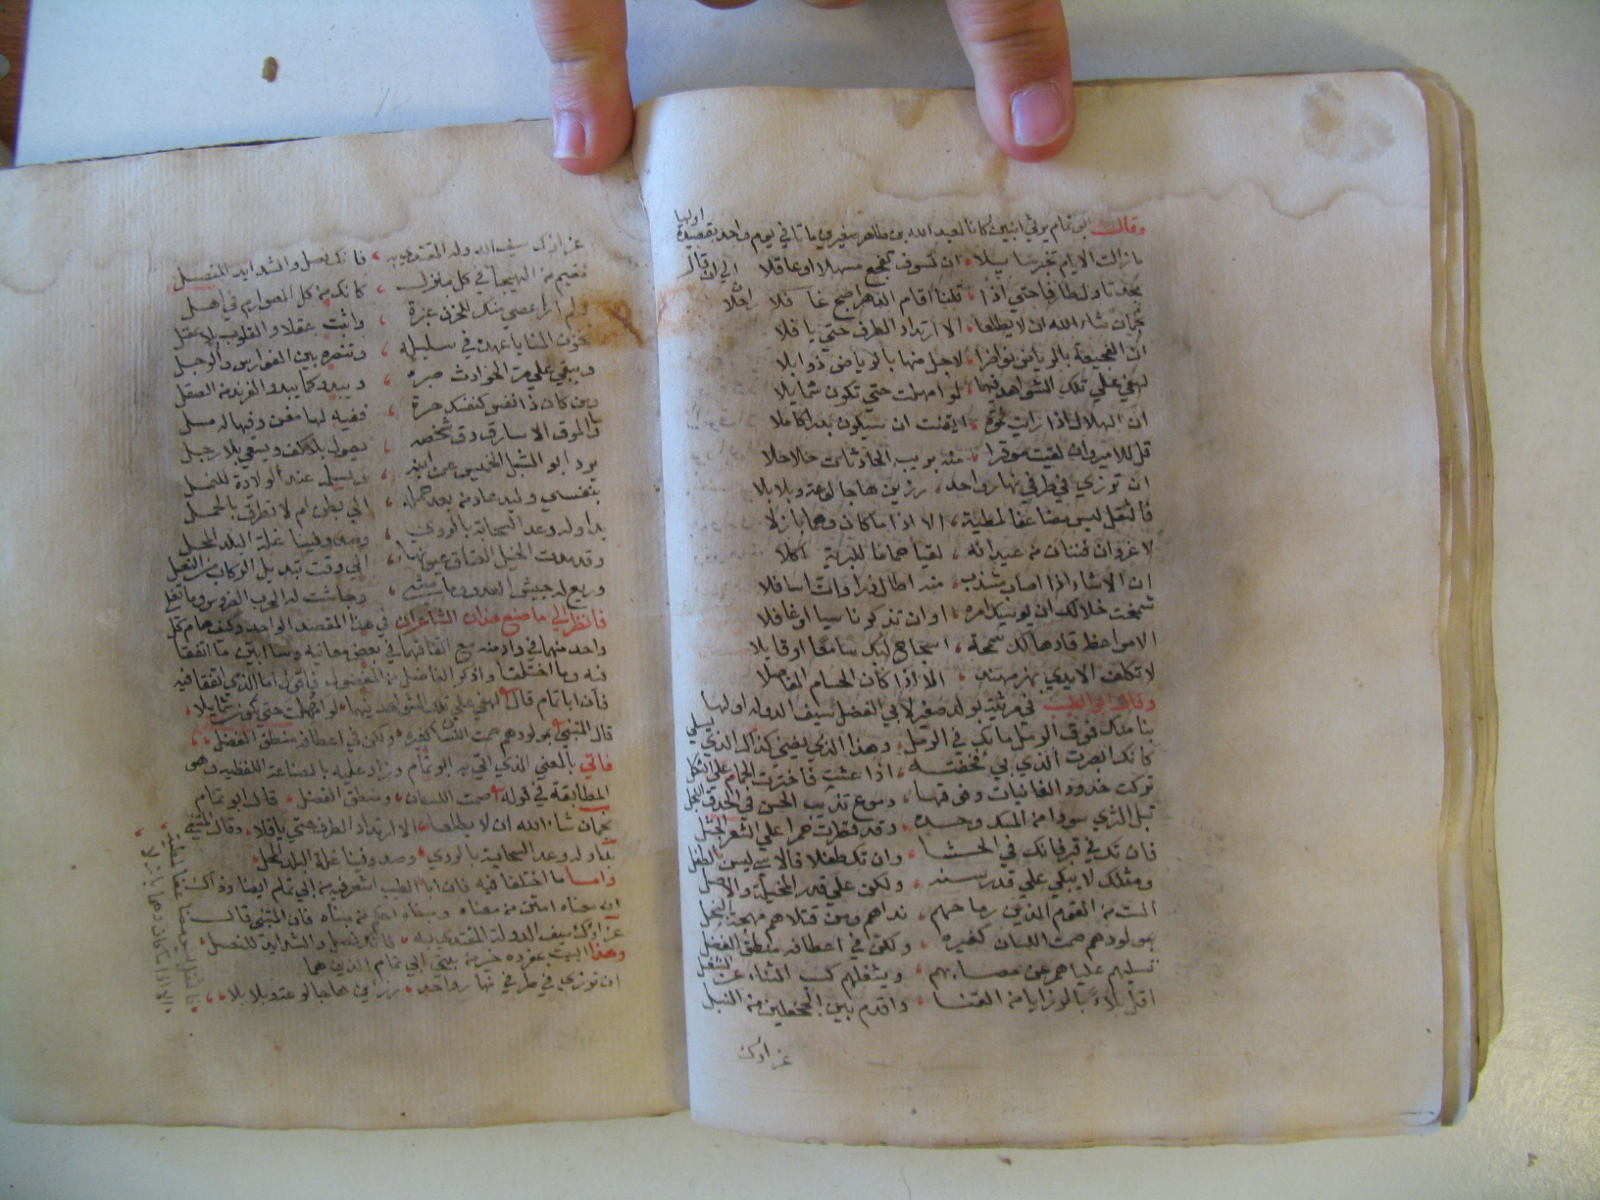 وقال ابو تمام يرثي ابنين كانا لعبد الله بن طاهر صغيرين ماتا في يوم واحد بقصيدة اولها
ما زالت الايام تخبر سائلا ان سوف تفجع مسهلا او عاقلا الي ان قال
مجد تاوب طارقا حتي اذا قلنا اقام الدهر اصبح غافلا راحلا
نجمان شاء الله ان لا يطلعا الا ارتداد الطرف حتي يافلا
ان الفجيعة بالرياض نواضرا لاجل منها بالرياض ذوابلا
لهفي علي تلك الشواهد فيهما لو امهلت حتي تكون شمايلا
ان الهلال اذا رايت نموه ايقنت ان سيكون بدرا كاملا
قل للامير وان لقيت موقرا منه بريب الحادثات حلاحلا
ان ترزي في طرفي نهار واحد رزين هاجا لوعة وبلابلا
فالثقل ليس مضاعفا لمطية الا اذا ما كان وهما بازلا
لا غرو ان فننان من عيدانه لقيا حماما للبرية اكلا
ان الاشاء اذا اصاب مشذب منه اطال ذرا واث اسافلا
شمخت خلالك ان يوسيك امرؤ او ان تذكر ناسيا او غافلا
الا مواعظ قادها لك سمحة اسجاح لبك سامعا او قايلا
لا تكلف الايدي بهز مهند الا اذا كان الحسام الفاصلا
وقال ابو الطيب في مرثية لولد صغير لابي الفضل سيف الدوله اولها
بنا منك فوق الرمل ما بك في الرمل وهذا الذي يضني كذاك الذي يبلي
كانك ابصرت الذي بي فخفته اذا عشت فاخترت الحمام علي الثكل
تركت خدود الغانيات وفوقها دموع تذيب الحسن في الحدق النجل
تبل الثري سودا من المسك وحده وقد قطرت حمرا علي الشعر الجثل
فان تك في قبر فانك في الحشا وان تك طفلا فالاسي ليس بالطفل
ومثلك لا يبكي علي قدر سنه ولكن علي قدر المخيلة والاصل
الست من القوم الذين رماحهم نداهم ومن قتلاهم مهجة البخل
بمولودهم صمت اللسان كغيره ولكن في اعطافه منطق الفضل
تسليهم علياهم عن مصابهم ويشغلهم كسب الثناء عن الشغل
اقل بلاء بالرزايا من القنا واقدم بين الجحفلين من النبل
عزاؤك
عزاؤك سيف الدوله المقتدي به فانك نصل والشدايد للنصل
مقيم من الهيجا في كل منزل كانك من كل الصوارم في اهل
ولم ار اعصي منك للحزن عبرة واثبت عقلا والقلوب بلا عقل
تخون المنايا عهده في سليله وتنصره بين الفوارس والرجل
ويبقي علي مر الحوادث صبره ويبدو كما يبدو الفرند من الصقل
ومن كان ذا نفس كنفسك حرة ففيه لها مغن وفيها له مسل
وما الموت الا سارق دق شخصه يصول بلا كف ويسعي بلا رجل
يرد ابو الشبل الخميس عن ابنه ويسلمه عند الولادة للنمل
بنفسي وليد عاد من بعد حمله الي بطن ام لا تطرق بالحمل
بدا وله وعد السحابة بالروي وصد وفينا غلة البلد المحل
وقد مدت الخيل العتاق عيونها الي وقت تبديل الركاب من النعل
وريع له جيش العدو وما مشي وجاشت له الحرب الضروس وما تغلي
فانظر الي ما صنع هذان الشاعران في هذا المقصد الواحد وكيف هام كل
واحد منهما في واد منه مع اتفاقهما في بعض معانيه وسابين ما اتفقا
فيه وما اختلفا واذكر الفاضل من المفضول فاقول اما الذي اتفقا فيه
فان ابا تمام قال لهفي علي تلك الشواهد فيهما لو امهلت حتي تكون شمايلا
قال المتنبي بمولودهم صمت اللسان كغيره ولكن في اعطافه منطق الفضل
فاتي بالمعني الذي اتي به ابو تمام وزاد عليه بالصناعة اللفظيه وهي
المطابقة في قوله صمت اللسان ومنطق الفضل قال ابو تمام
نجمان شاء الله ان لا يطلعا الا ارتداد الطرف حتي يافلا وقال المتنبي
بدا وله وعد السحابة بالروي وصد وفينا غلة البلد المحل
واما ما اختلفا فيه فان ابا الطيب اشعر فيه من ابي تمام ايضا وذاك
ان معناه امتن من معناه ومبناه احكم من مبناه فان المتنبي قال
عزاؤك سيف الدولة المقتدي به فانك نصل والشدايد للنصل
وهذا البيت بمفرده خير من بيتي ابي تمام الذين هما
ان ترزي في طرفي نهار واحد رزاين هاجا لوعة وبلابلا
فالثقل ليس مضاعفا لمطية
الا اذا ما كان وهما بازلا